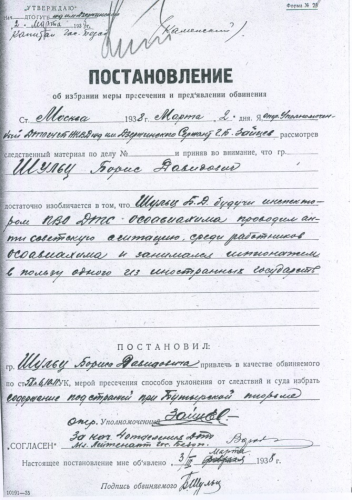 „УТВЕРЖДАЮ"
Форма № 28
2 марта 193
Капитан гос. без.
Каменский
ПОСТАНОВЛЕНИЕ
об избрании меры пресечения и предъявлении обвинения
Ст. Москва 1938 г. Марта „2" дня. Я опер. Уполномочен-
ный им. Дзержинского Сержант Г.Б. Зайцев, рассмотрев
следственный материал по делу № и приняв во внимание, что гр.
ШУЛЬЦ Борис Давидович
достаточно изобличается в том, что Шульц Б.Д. будучи инспекто-
ром ПВО осоавиахима проводил ан-
ти советскую агитацию, среди работников
осоавиахима и занимался шпионажем
в пользу одного из иностранных государств
ПОСТАНОВИЛ:
гр. Шульц Бориса Давидовича привлечь в качестве обвиняемого
по ст. УК, мерой пресечения способов уклонения от следствия и суда избрать
содержание под стражей при Бутырской тюрьме
опер. Уполномоченный Зайцев
„СОГЛАСЕН" За нач. 4 отделения
мл. лейтенант гос. безоп.
Настоящее постановление мне об'явлено 3/III марта 1938 г.
Подпись обвиняемого БШульц
10191—35